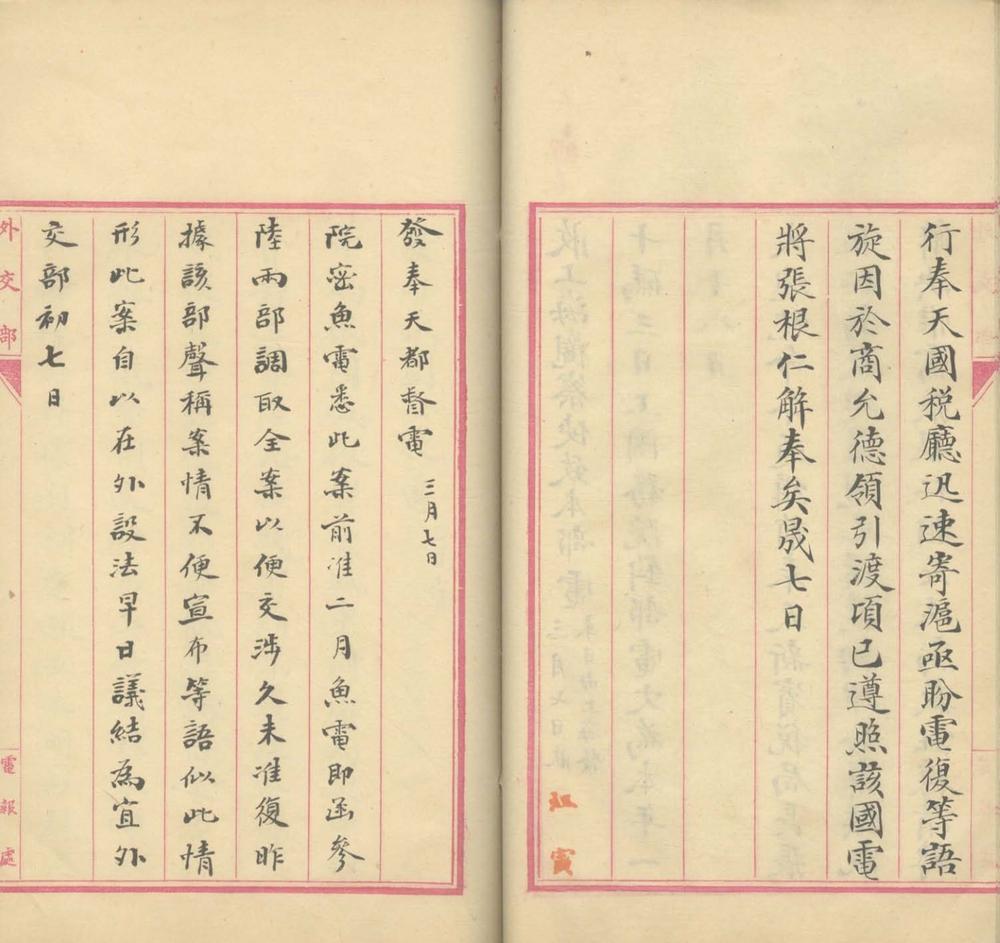 行奉天國稅廳迅速寄滬亟盼電復等語
旋因於商允德領引渡頃已遵照該國電
將張根仁解奉矣晟七日
發奉天都督電 三月七日
院密魚電悉此案前准二月魚電即函參
陸兩部調取全案以便交涉久未准復昨
據該部聲稱案情不便宣布等語似此情
形此案自以在外設法早日議結為宜外
交部初七日
外交部
電報處